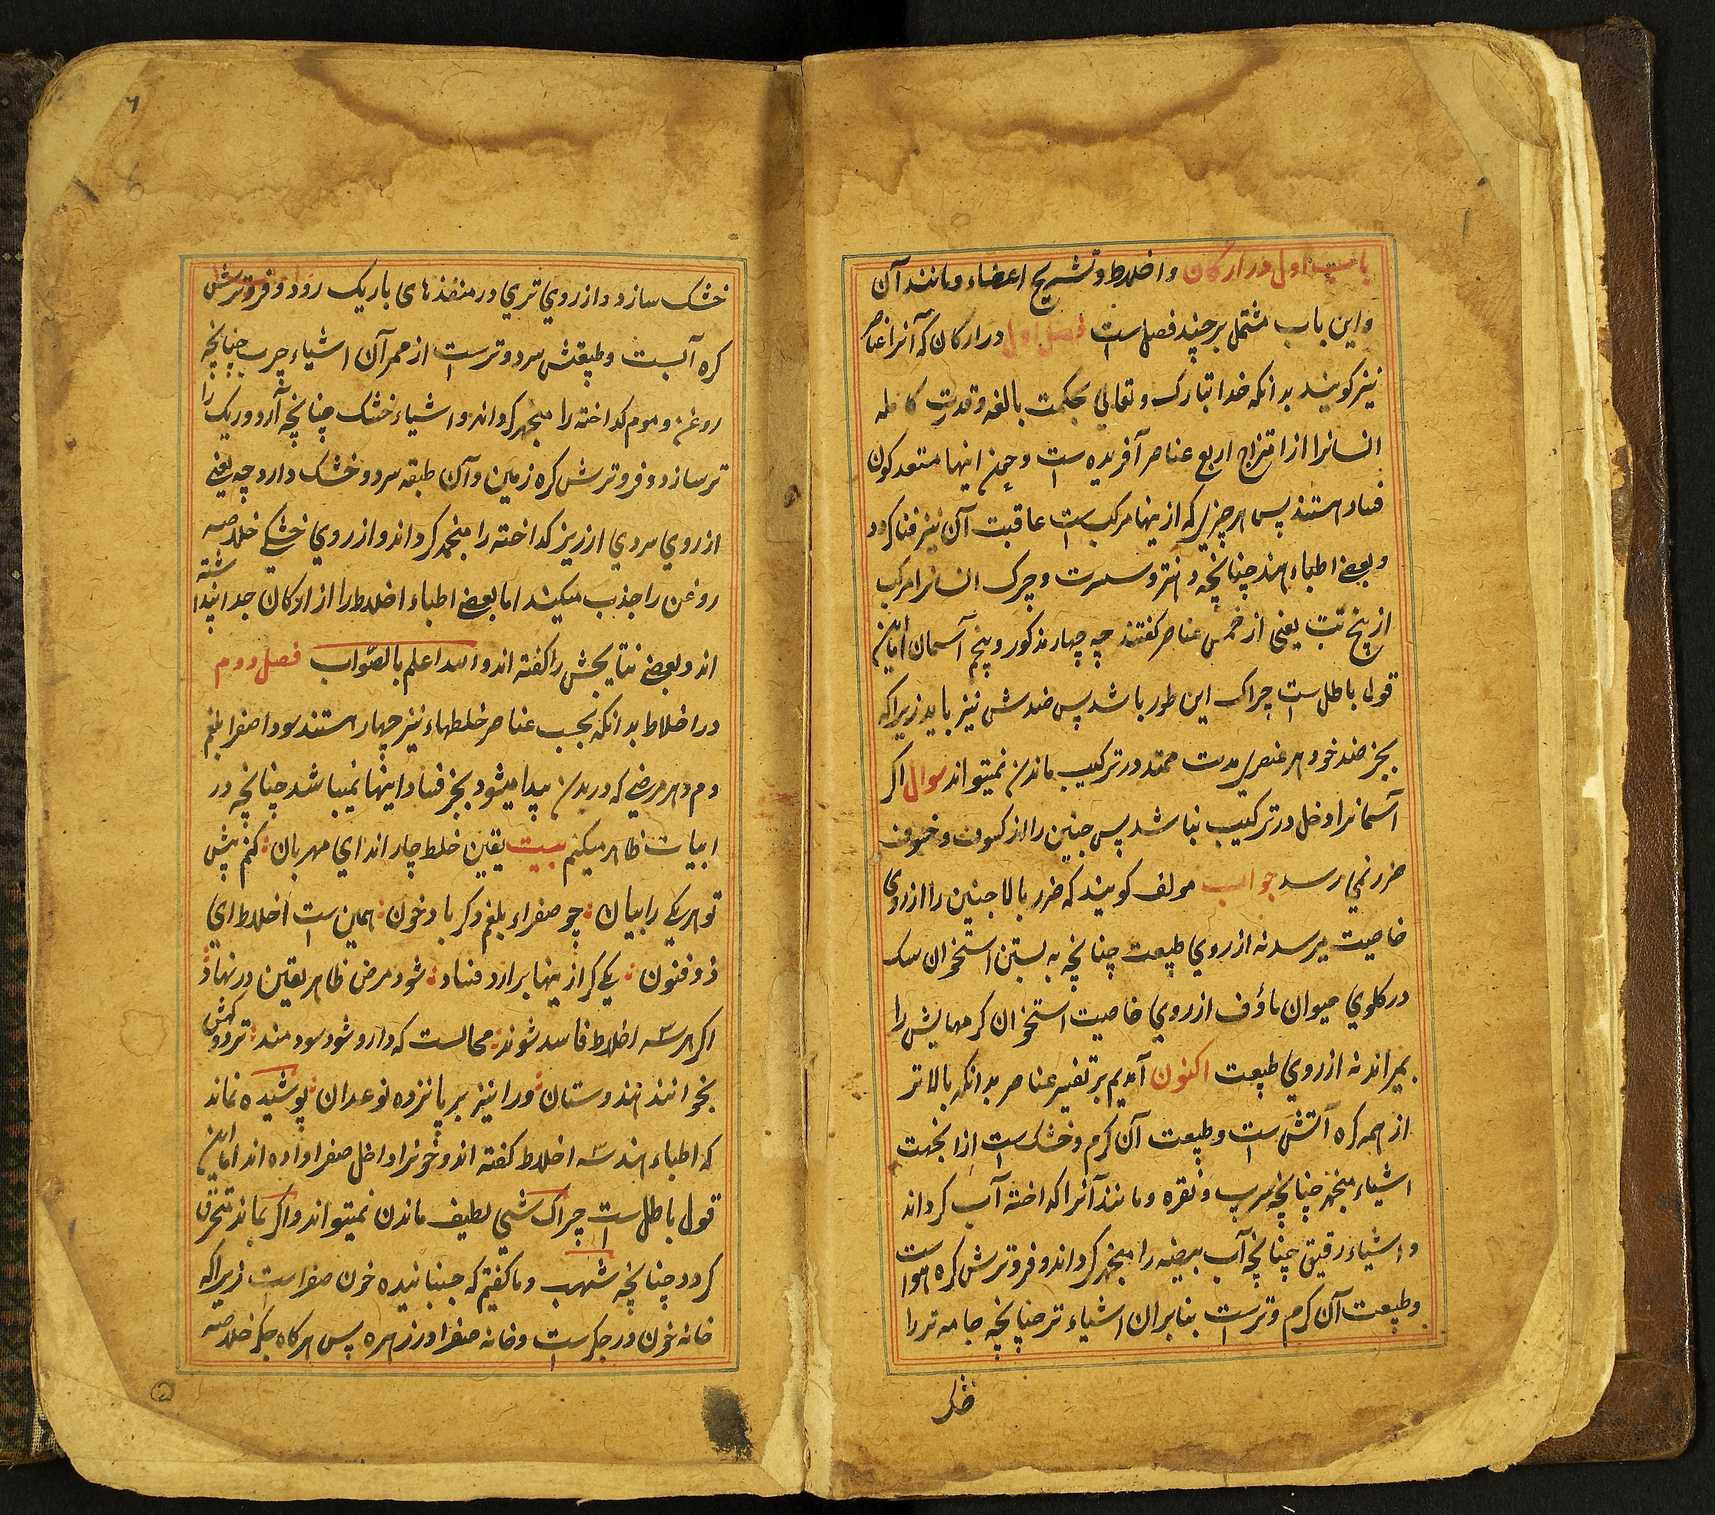 باب اول در ارکان و اخلاط و تشریح اعضاء و مانند آن
و این باب مشتمل بر چند فصل است فصل اول در ارکان که آنرا عناصر
نیز کویند بدانکه خدا تبارک و تعالی بحکمت بالغه و قدرت کامله
انسانرا از امتزاج اربع عناصر آفریده است و چون اینها مستعد کون
فساد هستند پس هر چیزیکه ازینها مرکب است عاقبت آن نیز فنا کردد
و بعضے اطباء هند چنانچه دهنتر و سسرت و چرک انسانرا مرکب
از پنج تت یعنی از خمس عناصر کفتند چه چهار مذکور و پنجم آسمان اما این
قول باطل است چراک این طور باشد پس ضدش نیز باید زیراکه
بجز ضد خود هر عنصری مدت ممتد در ترکیب ماندن نمیتواند سوال اکر
آسمانرا دخل در ترکیب نباشد پس جنین را از کسوف و خسوف
ضرر نمی رسد جواب مولف کویند که ضرر بالا جنین را از روی
خاصیت میرسد نه از روي طبیعت چنانچه به بستن استخوان سک
در کلوي حیوان ماؤف از روي خاصیت استخوان کرمهایش را
بمیراند نه از روي طبیعت اکنون آمدیم بر تفسیر عناصر بدانکه بالاتر
از همه کره آتش است و طبیعت آن کرم و خشک است ازانجهت
اشیاء منجمد چنانچه سرب و نقره و مانند آنرا کداخته آب کرداند
و اشیاء رقیق چنانچه آب بیضه را منجمد کرداند و فروترش کره هوا است
و طبیعت آن کرم و تر است بنابران اشیاء تر چنانچه جامه تر را
خشک
خشک سازد و از روي تري در منفذهای باریک رود و فروترش
کره آبست و طبقتش سرد و تر است از ممر آن اشیاء چرب چنانچه
روغن و موم کداخته را منجمد کرداند و اشیاء خشک چنانچه آرد و ریک را
تر سازد و فروترش کره زمین و آن طبقه سرد و خشک دارد چه یعنے
از روي سردي ارزیز کداخته را منجمد کرداند و از روي خشکے خلاصه
روغن را جذب میکند اما بعضے اطباء اخلاط را از ارکان جدا نپنداشته
اند و بعضے نتایجش را کفته اند والله اعلم بالصواب فصل دوم
در اخلاط بدانکه بحسب عناصر خلطهاء نیز چهار هستند سودا صفرا بلغم
و دم و هر مرضے که در بدن پیدا میشود بجز فساد اینها نمیباشد چنانچه در
ابیات ظاهر میکنم بیت یقین خلط چار اند اي مهربان کنم پیش
تو هر یکے را بیان چو صفراء بلغم دکر باد خون همین است اخلاط اي
ذوفنون یکے کر ازینها برارد فساد شود مرض ظاهر یقین در نهاد
اکر هر سه اخلاط فاسد شوند محالست که دارو شود سودمند تردوکش
بخوانند هندوستان ورا نیز بر پانزده نوع دان پوشیده نماند
که اطباء هند سه اخلاط کفته اند و خونرا داخل صفرا داده اند اما این
قول باطل است چراک شئ لطیف ماندن نمیتواند و اکر بماند متحرق
کردد چنانچه شهب و ما کفتیم که جنبانیده خون صفرا است زیراکه
خانه خون در جکر است و خانه صفرا در زهره پس هر کاه جکر خلاصه